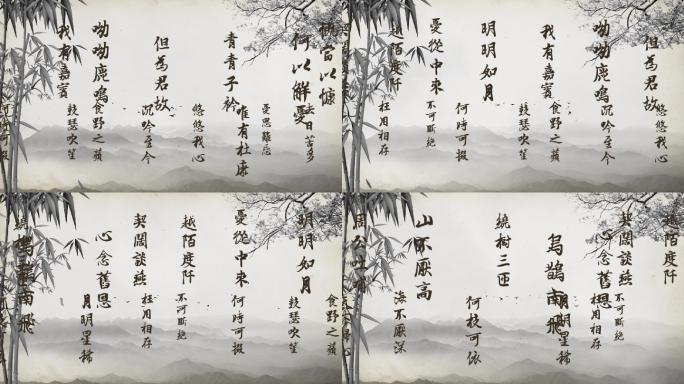 當以慷
日苦多
何以解憂
憂思難忘
青青子衿
唯有杜康
悠悠我心
但為君故
沉吟至今
呦呦鹿鳴
食野之蘋
我有嘉賓
鼓瑟吹笙
但為君故
悠悠我心
呦呦鹿鳴
沉吟至今
我有嘉賓
食野之蘋
鼓瑟吹笙
明明如月
何時可掇
憂從中來
不可斷絕
越陌度阡
枉用相存
食野之蘋
明明如月
鼓瑟吹笙
憂從中來
何時可掇
越陌度阡
不可斷絕
契闊談讌
枉用相存
心念舊恩
月明星稀
南飛
越陌度阡
契闊談讌
不可斷絕
心念舊恩
枉用相存
烏鵲南飛
月明星稀
繞樹三匝
何枝可依
山不厭高
海不厭深